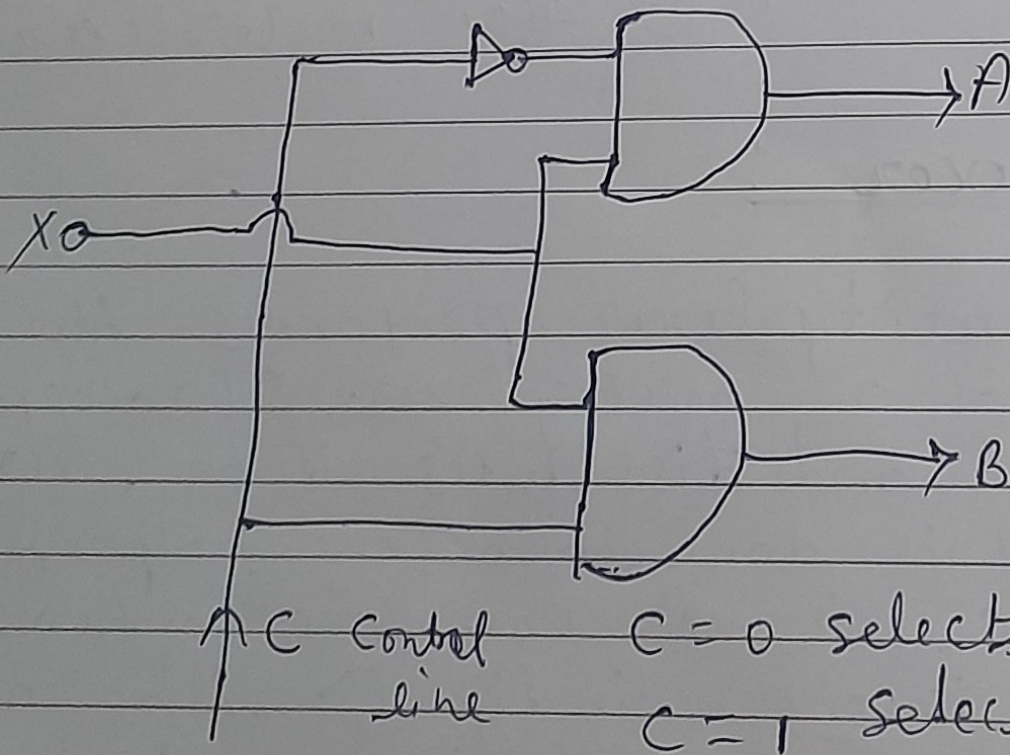 A
X
B
C Control line
C = 0 select
C = 1 selec